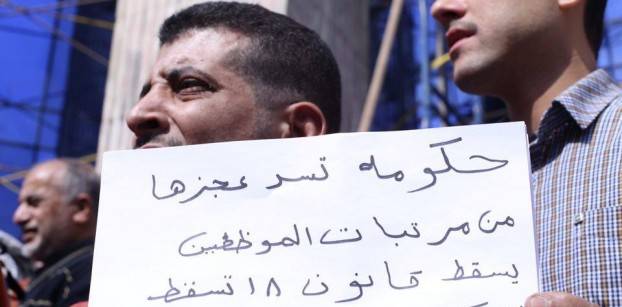 حكومه تسد عجزها
من مرتبات الموظفين
يسقط قانون ١٨ تسقط